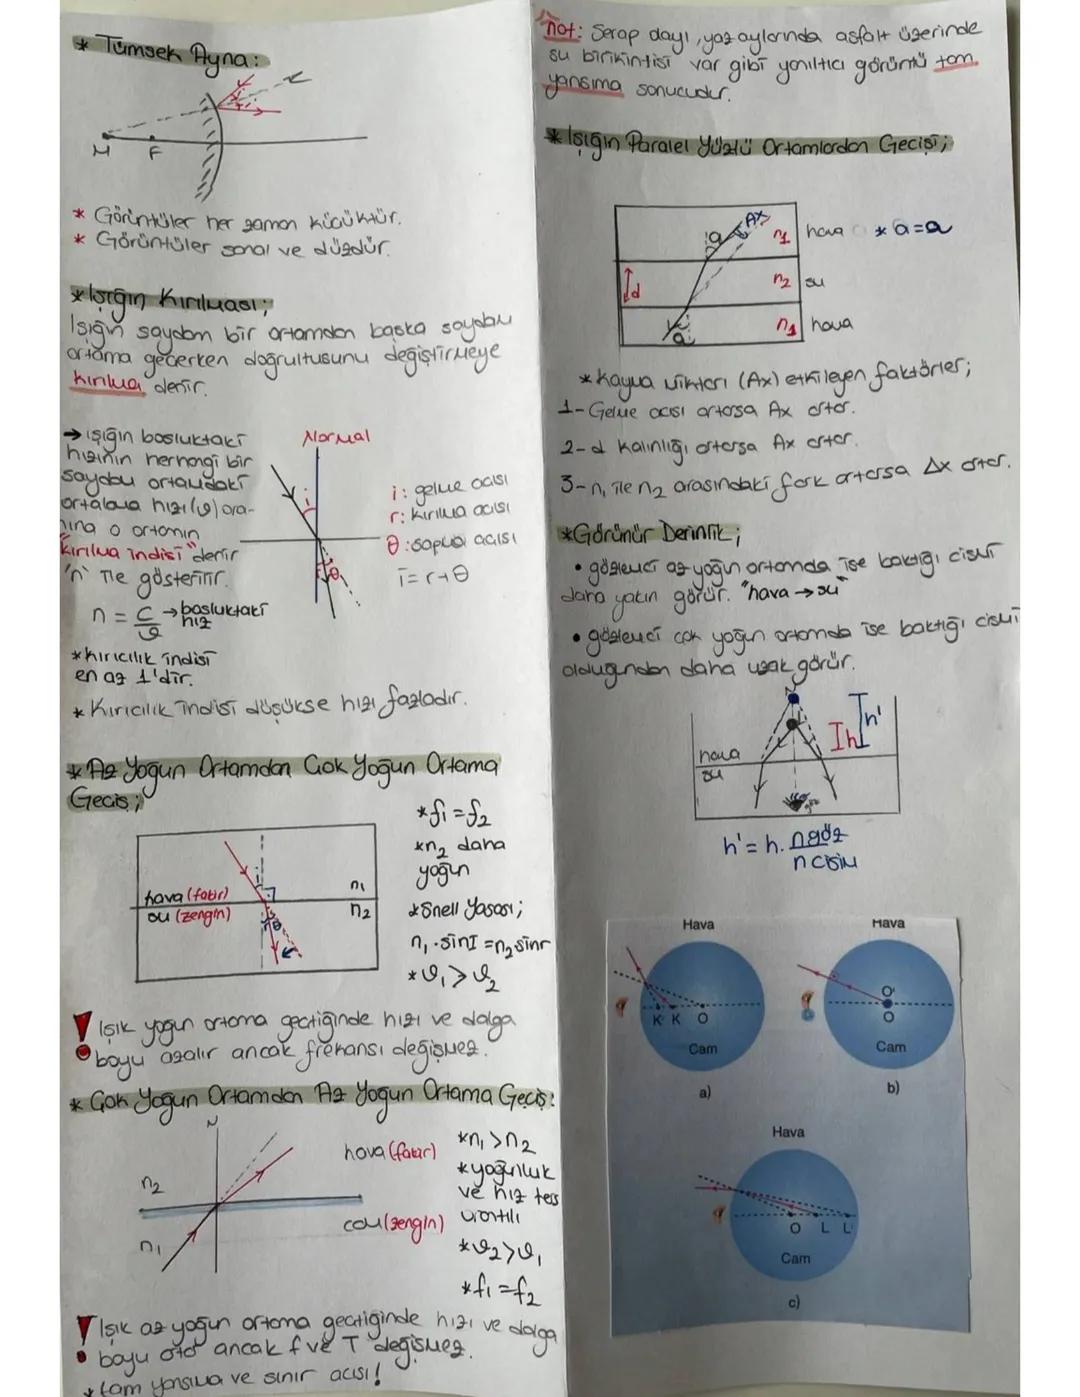 * Tümsek Ayna:
M F
* Görüntüler her zaman küçüktür.
* Görüntüler sanal ve düzdür.
* Işığın Kırılması;
Işığın saydam bir ortamdan başka saydam
ortama geçerken doğrultusunu değiştirmeye
kırılma denir.
→ ışığın boşluktaki
hızının herhangi bir
saydam ortamdaki
ortalama hızı (υ) ora-
nına o ortamın
"kırılma indisi" denir
'n' ile gösterilir.
n = c/υ → boşluktaki hız
Normal
i
r θ
i: gelme açısı
r: kırılma açısı
θ: sapma açısı
i = r + θ
* kırıcılık indisi
en az 1'dir.
* Kırıcılık indisi düşükse hızı fazladır.
* Az Yoğun Ortamdan Çok Yoğun Ortama
Geçiş;
hava (fakir) n₁
su (zengin) n₂
i
r θ
* f₁ = f₂
* n₂ daha
yoğun
* Snell Yasası;
n₁ . sinI = n₂ sinr
* υ₁ > υ₂
! Işık yoğun ortama geçtiğinde hızı ve dalga
boyu azalır ancak frekansı değişmez.
* Çok Yoğun Ortamdan Az Yoğun Ortama Geçiş:
N
hava (fakir)
n₂
cam (zengin)
n₁
* n₁ > n₂
* yoğunluk
ve hız ters
orantılı
* υ₂ > υ₁
* f₁ = f₂
! Işık az yoğun ortama geçtiğinde hızı ve dalga
boyu artar ancak f ve T değişmez.
* tam yansıma ve sınır açısı!
not: Serap dayı, yaz aylarında asfalt üzerinde
su birikintisi var gibi yanıltıcı görüntü tam
yansıma sonucudur.
* Işığın Paralel Yüzlü Ortamlardan Geçişi;
a Ax n₁ hava * a = a
d n₂ su
a n₁ hava
* Kayma miktarı (Ax) etkileyen faktörler;
1- Gelme açısı artarsa Ax artar.
2- d kalınlığı artarsa Ax artar.
3- n₁ ile n₂ arasındaki fark artarsa Δx artar.
* Görünür Derinlik;
• gözlemci az yoğun ortamda ise baktığı cismi
daha yakın görür. "hava → su"
• gözlemci çok yoğun ortamda ise baktığı cismi
olduğundan daha uzak görür.
h h'
hava
su
göz
h' = h. ngöz/ncisim
Hava
K' K O
Cam
a)
Hava
O'
O
Cam
b)
Hava
O L L'
Cam
c)